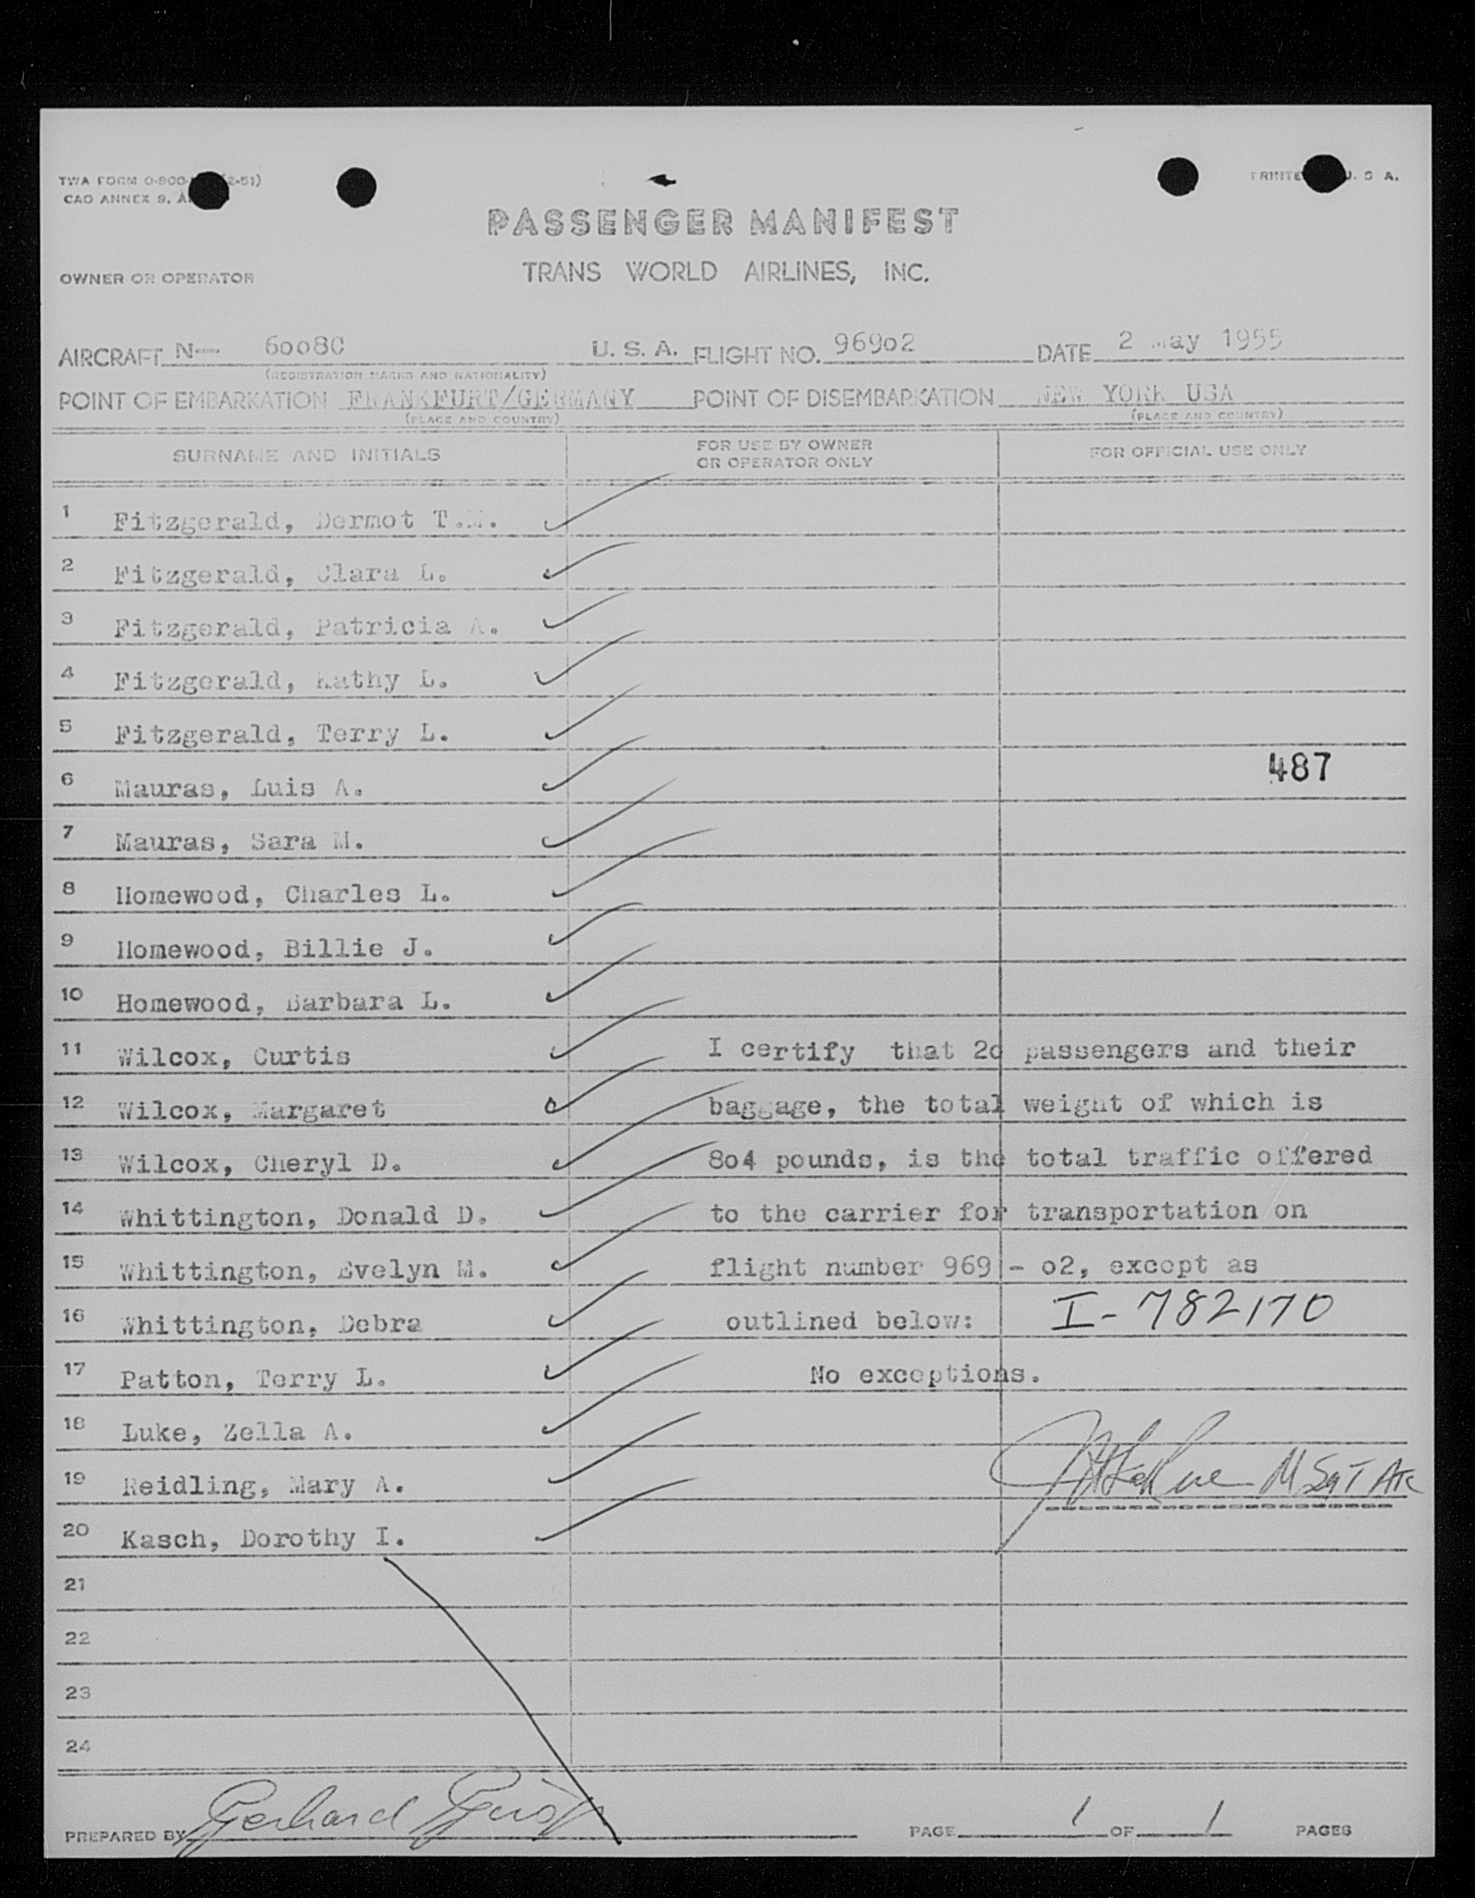 TWA FORM 0-800- (2-51)
CAO ANNEX 9,
PRINTED U. S. A.
PASSENGER MANIFEST
OWNER OR OPERATOR TRANS WORLD AIRLINES, INC.
AIRCRAFT N-- 6008C U. S. A. FLIGHT NO. 96902 DATE 2 May 1955
(REGISTRATION MARKS AND NATIONALITY)
POINT OF EMBARKATION FRANKFURT/GERMANY POINT OF DISEMBARKATION NEW YORK USA
(PLACE AND COUNTRY) (PLACE AND COUNTRY)
SURNAME AND INITIALS FOR USE BY OWNER OR OPERATOR ONLY FOR OFFICIAL USE ONLY
1 Fitzgerald, Dermot T.
2 Fitzgerald, Clara L.
3 Fitzgerald, Patricia A.
4 Fitzgerald, Kathy L.
5 Fitzgerald, Terry L.
487
6 Mauras, Luis A.
7 Mauras, Sara M.
8 Homewood, Charles L.
9 Homewood, Billie J.
10 Homewood, Barbara L.
11 Wilcox, Curtis I certify that 20 passengers and their
12 Wilcox, Margaret baggage, the total weight of which is
13 Wilcox, Cheryl D. 804 pounds, is the total traffic offered
14 Whittington, Donald D. to the carrier for transportation on
15 Whittington, Evelyn M. flight number 969 - o2, except as
16 Whittington, Debra outlined below: I-782170
17 Patton, Terry L. No exceptions.
18 Luke, Zella A.
19 Reidling, Mary A. M Sgt
20 Kasch, Dorothy I.
21
22
23
24
PREPARED BY Gerhard PAGE 1 OF 1 PAGES